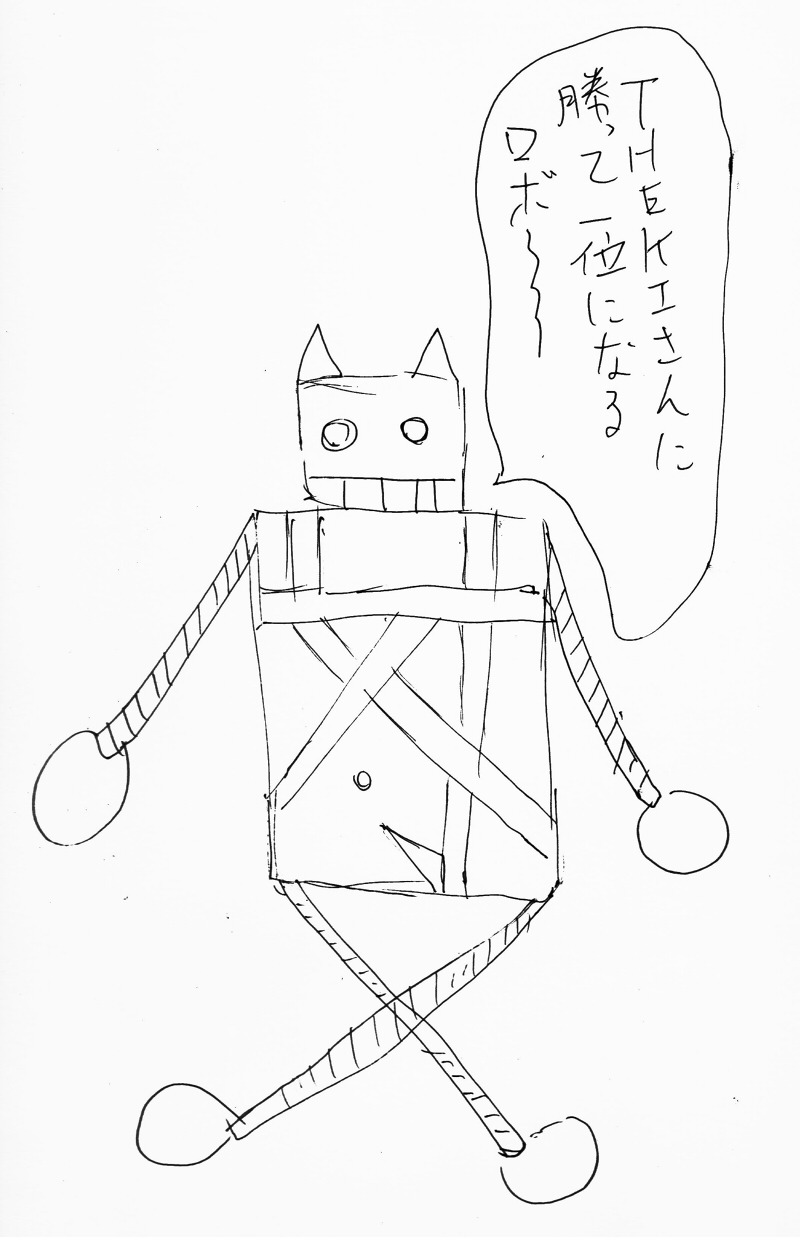 THEKIさんに
勝って一位になる
ロボ〜〜〜